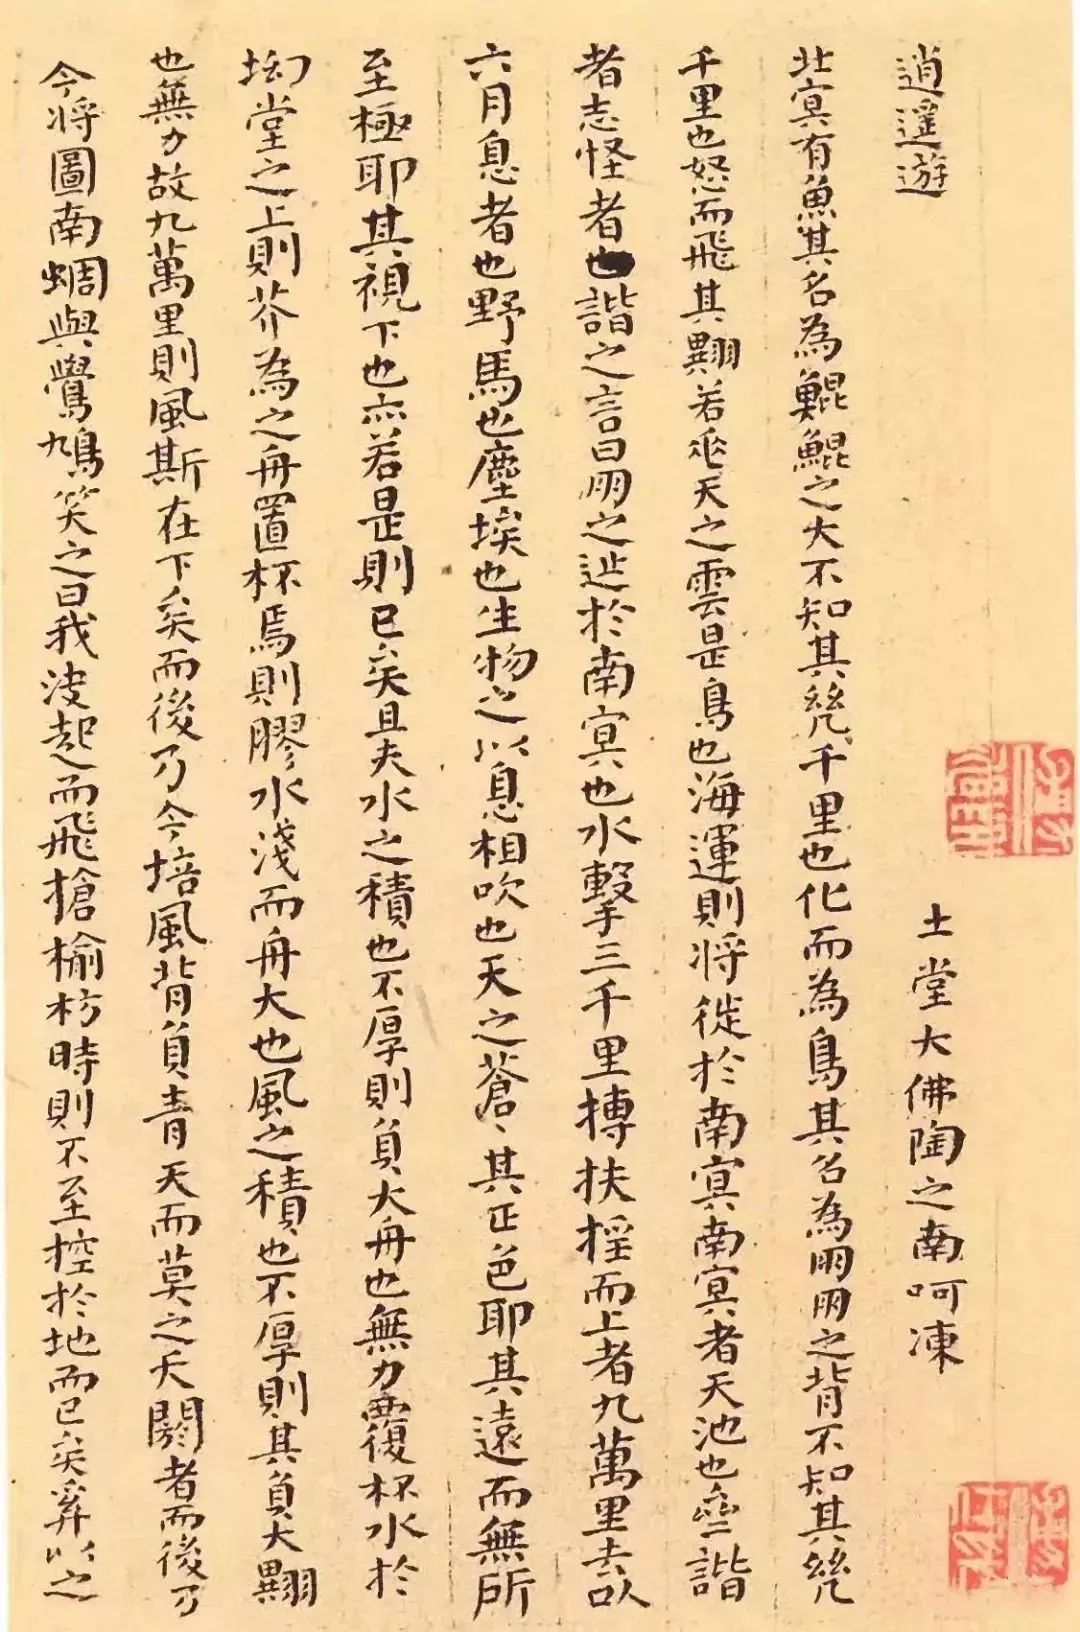 逍遙遊 土堂大佛陶之南呵凍
北冥有魚其名為鯤鯤之大不知其幾千里也化而為鳥其名為鵬鵬之背不知其幾
千里也怒而飛其翼若垂天之雲是鳥也海運則將徙於南冥南冥者天池也齊諧
者志怪者也諧之言曰鵬之徙於南冥也水擊三千里摶扶搖而上者九萬里去以
六月息者也野馬也塵埃也生物之以息相吹也天之蒼〻其正色耶其遠而無所
至極耶其視下也亦若是則已矣且夫水之積也不厚則負大舟也無力覆杯水於
坳堂之上則芥為之舟置杯焉則膠水淺而舟大也風之積也不厚則其負大翼
也無力故九萬里則風斯在下矣而後乃今培風背負青天而莫之夭閼者而後乃
今將圖南蜩與鷽鳩笑之曰我決起而飛槍榆枋時則不至控於地而已矣奚以之